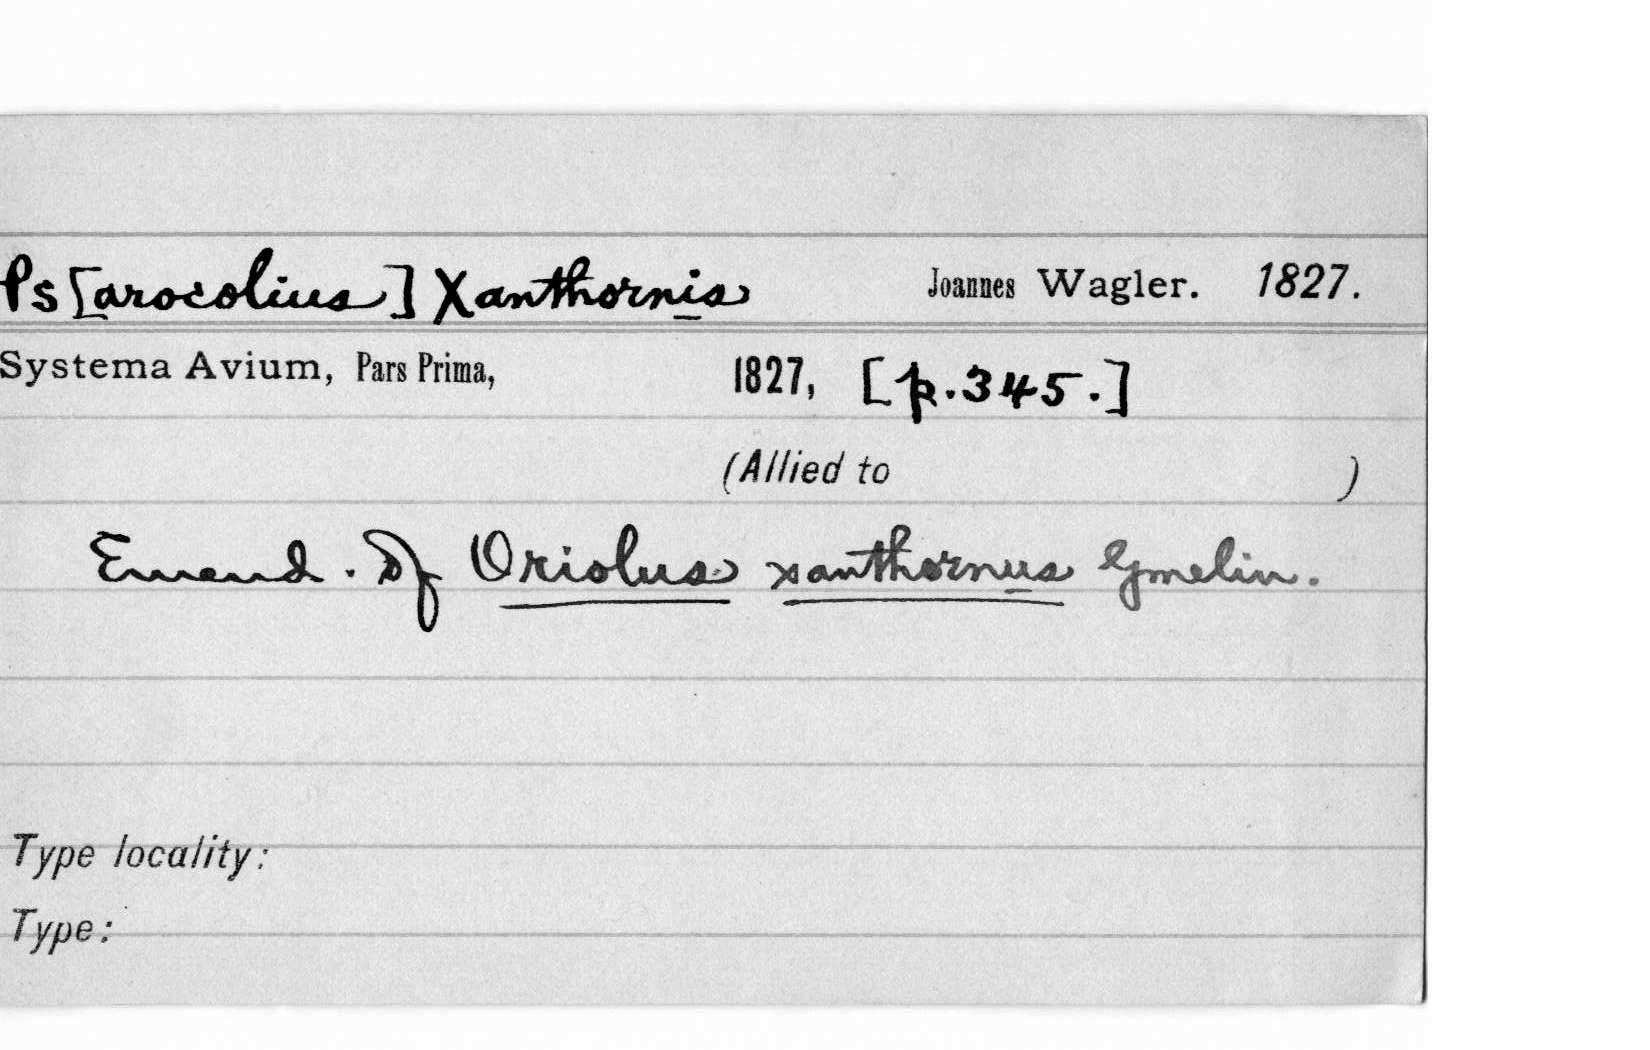 Ps[arocolius] Xanthornis Joannes Wagler. 1827.
Systema Avium, Pars Prima, 1827, [p.345.]
(Allied to )
Emend. of Oriolus xanthornus Gmelin.
Type locality:
Type: